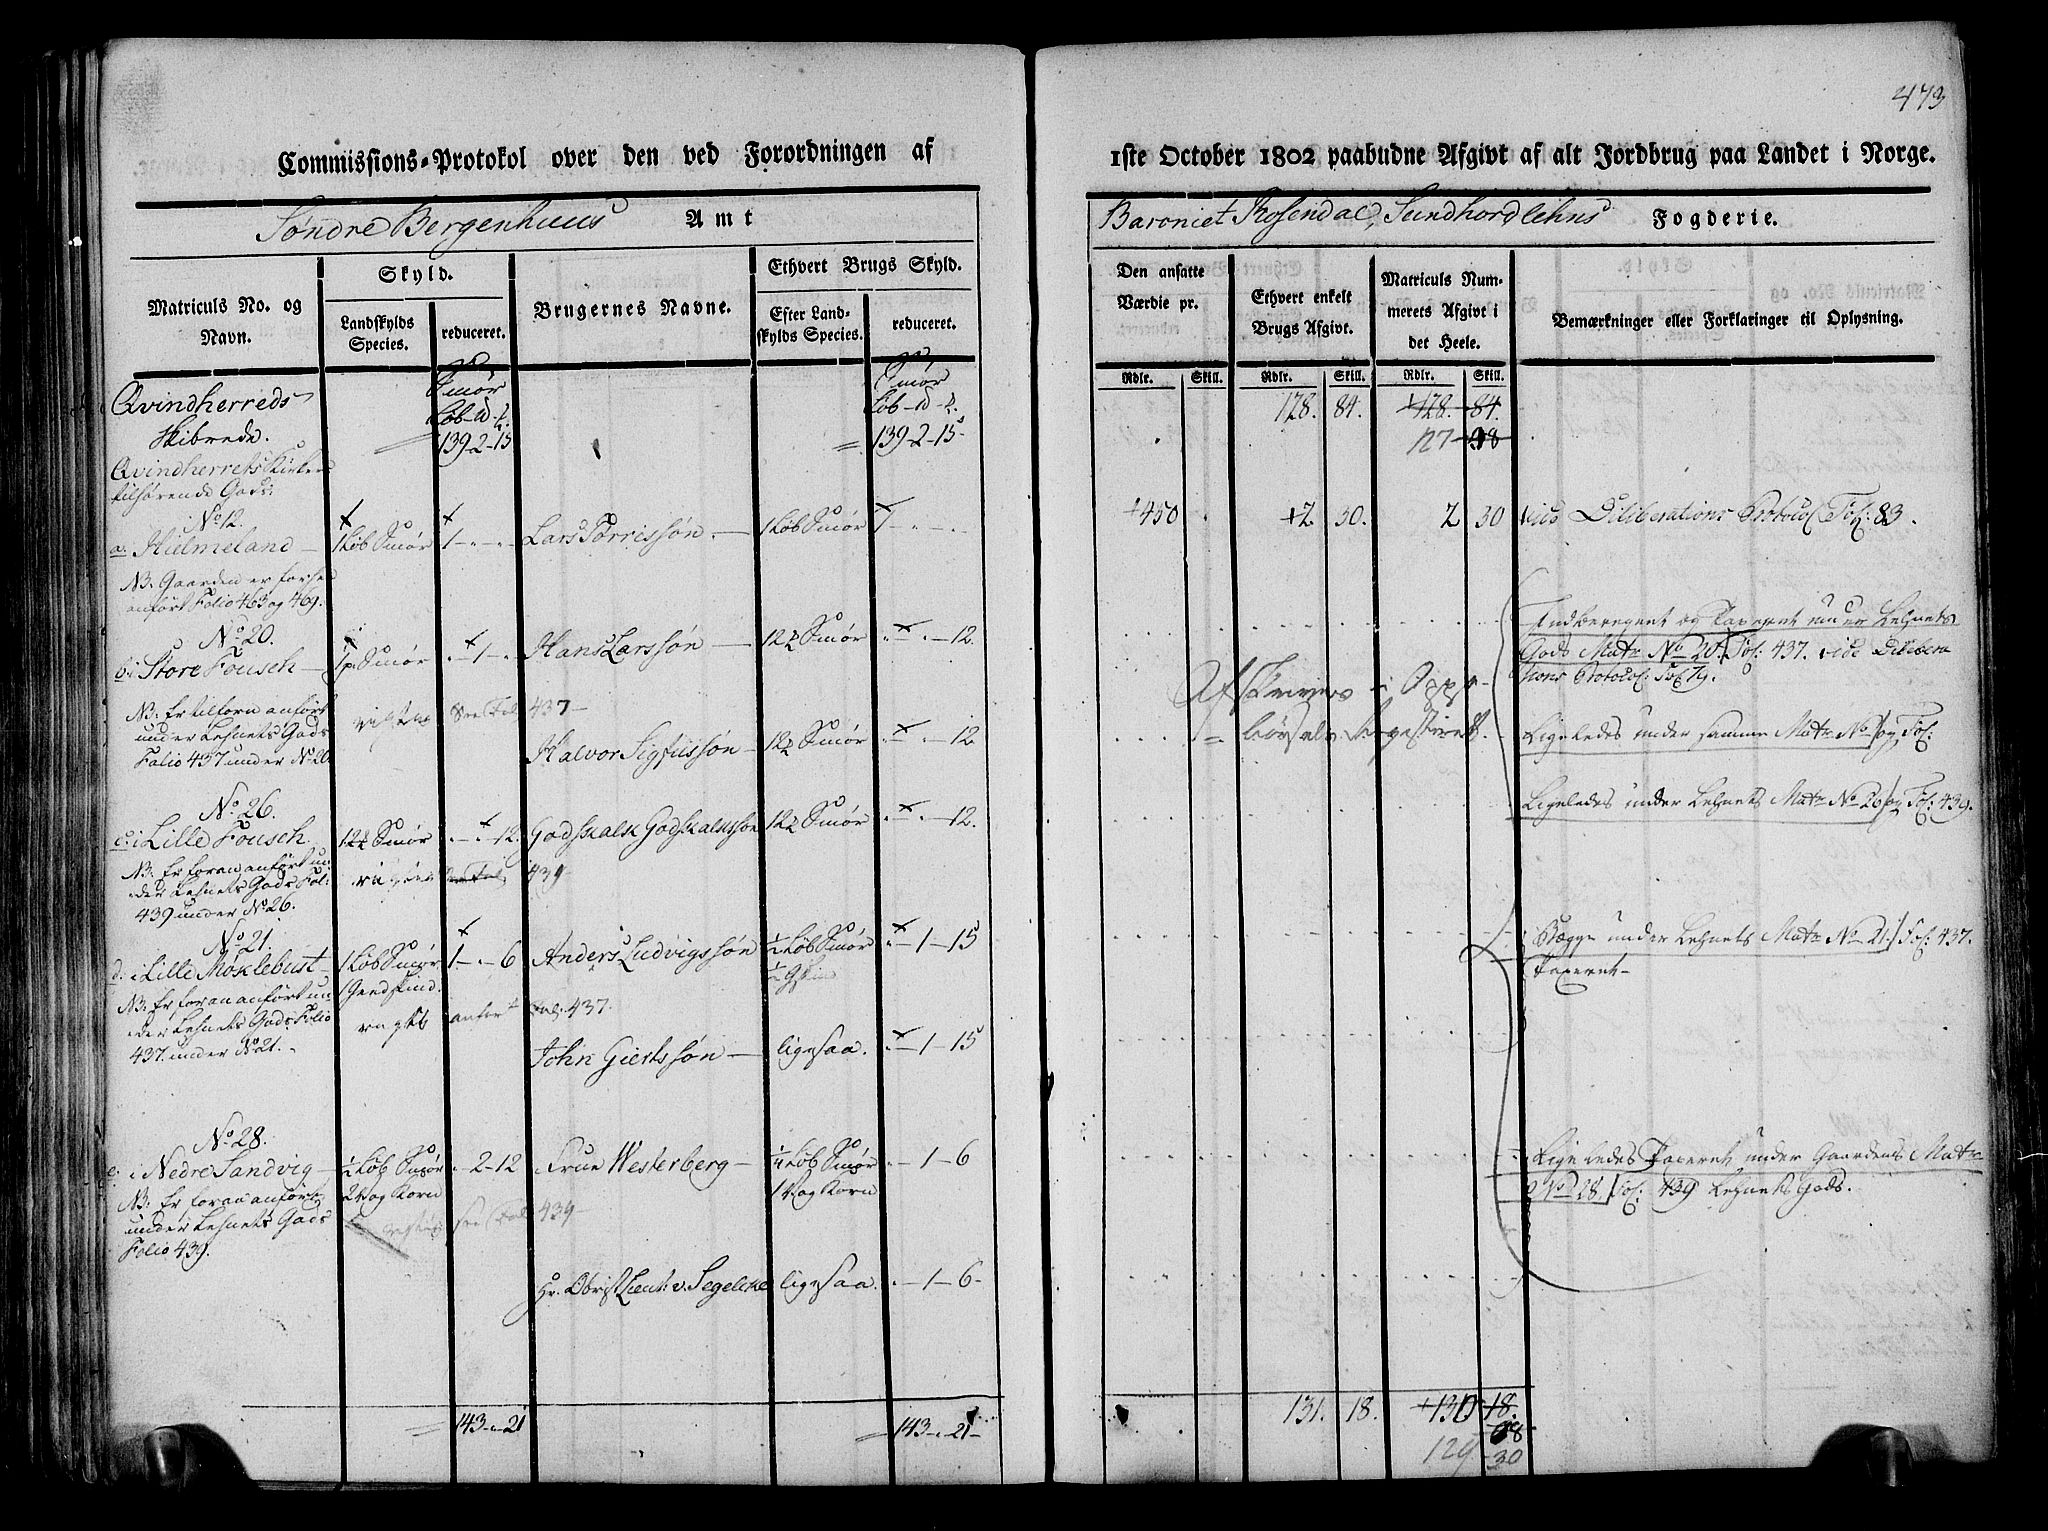 473
Commissions-Protokol over den ved Forordningen af
1ste October 1802 paabudne Afgivt af alt Jordbrug paa Landet i Norge.
Søndre Bergenhuus Amt
Baroniet Rosendal, Sundhordlehns Fogderie.
Matriculs No. og Navn.
Skyld.
Landskylds Species.
reduceret.
Brugernes Navne.
Ethvert Brugs Skyld.
Efter Landskylds Species.
reduceret.
Den ansatte Værdie pr.
Ethvert enkelt Brugs Afgivt.
Matriculs Nummerets Afgivt i det Heele.
Bemærkninger eller Forklaringer til Oplysning.
Rdlr. Skill. Rdlr. Skill. Rdlr. Skill.
Qvindherreds Smør Smør
Skibrede. 139-2-15 139-2-15 128. 84. 128. 84.
127
Qvindherrets Kirke
tilhørende Gods:
No 12.
a. Hielmeland 1 Løb Smør 1 - " - " Lars Torrissøn 1 Løb Smør 1 - " - " 450 2. 30. 2 30 vide Deliberations Protocol Fol: 83.
NB: Gaarden er
anført Folio 463 og 469.
No 20.
b: i Store Fousch 1 p. Smør " - 1 - " Hans Larssøn 12 Smør " - " - 12. Indberegnet og Taxeret under Lehnets
Gods Matr No 20. Fol: 437. vide Delibera
tions Protocol: Fol 79.
NB: Er tilforn anført
under Lehnets Gods
Folio 437 under No 20
See Fol 437
Halvor Sigfussøn 12 Smør " - " - 12. Ligeledes under samme Matr No og Fol:
Afskrives i
No 26.
c: i Lille Fousch 12 Smør " - " - 12. Godskalk Godskalkssøn 12 Smør " - " - 12. Ligeledes under Lehnets Matr No 26 og Fol: 439.
NB: Er foran anført un
der Lehnets Gods Fol:
439 under No 26.
439
No 21.
d: i Lille Møklebust 1 Løb Smør 1 - " - 6 Anders Ludvigssøn 1/2 Løb Smør " - 1 - 15 Begge under Lehnets Matr No 21. Fol: 437.
1 Geedskind. Taxeret
NB: Er foran anført un
der Lehnets Gods Folio
437. under No 21.
anført Fol: 437.
John Giertssøn ligesaa. " - 1 - 15
No 28.
e: i Nedre Sandvig 1/2 Løb Smør " - 2 - 12 Frue Westerberg 1/4 Løb Smør " - 1 - 6 Ligeledes Taxeret under Gaardens Matr
2 Vog Korn 1 Vog Korn No 28. Fol: 439 Lehnets Gods.
NB: Er foran anført
under Lehnets Gods
Folio 439.
see Fol 439
Hr. Obrist Lieut: v. Segelcke ligesaa. " - 1 - 6
143 - " - 21 143 - " - 21 131. 18. 18.
129 30